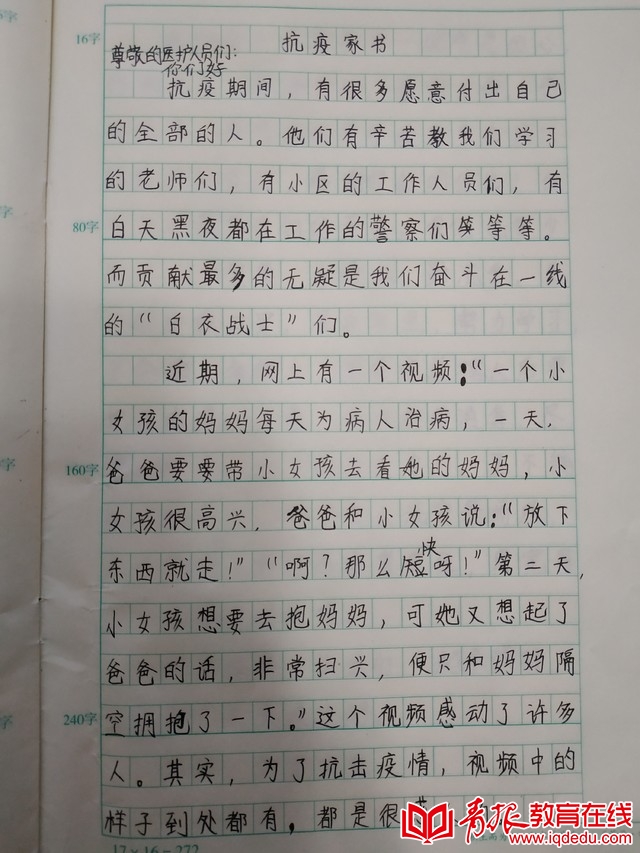 16字
抗疫家书
尊敬的医护人员们：
你们好
抗疫期间，有很多愿意付出自己
的全部的人。他们有辛苦教我们学习
的老师们，有小区的工作人员们，有
80字
白天黑夜都在工作的警察们等等。
而贡献最多的无疑是我们奋斗在一线
的“白衣战士”们。
近期，网上有一个视频：“一个小
女孩的妈妈每天为病人治病，一天，
160字
爸爸要要带小女孩去看她的妈妈，小
女孩很高兴，爸爸和小女孩说：“放下
快
东西就走！”“啊？那么短呀！”第二天，
小女孩想要去抱妈妈，可她又想起了
爸爸的话，非常扫兴，便只和妈妈隔
240字
空拥抱了一下。”这个视频感动了许多
人。其实，为了抗击疫情，视频中的
样子到处都有，都是很
青报教育在线
www.iqdedu.com
17×16=272